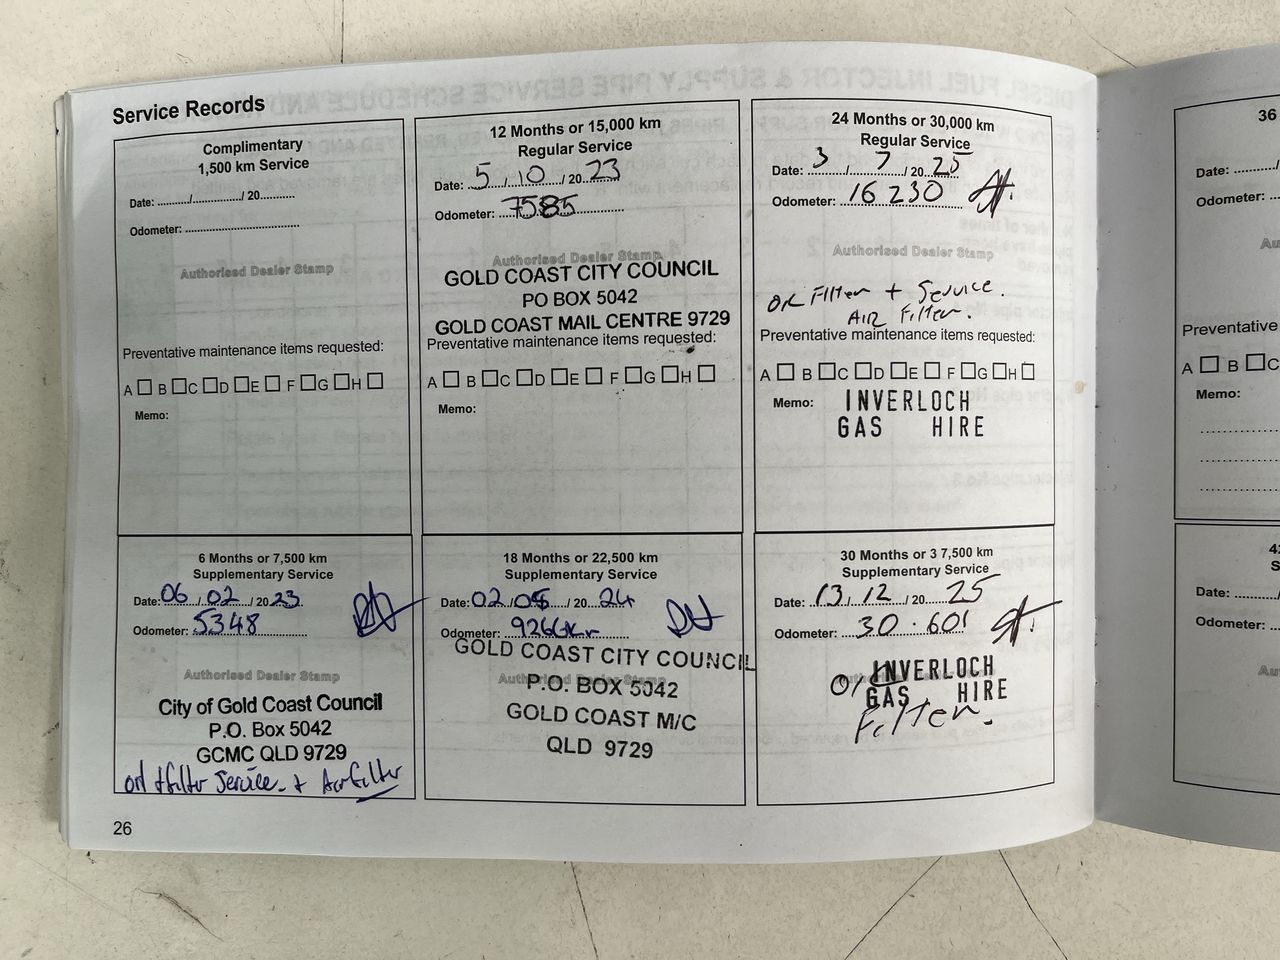 Service Records
Complimentary
1,500 km Service
Date: ........../............../ 20...........
Odometer: ....................................
Authorised Dealer Stamp
Preventative maintenance items requested:
A □ B □ C □ D □ E □ F □ G □ H □
Memo:
12 Months or 15,000 km
Regular Service
Date: 5 / 10 / 20 23
Odometer: 7585
Authorised Dealer Stamp
GOLD COAST CITY COUNCIL
PO BOX 5042
GOLD COAST MAIL CENTRE 9729
Preventative maintenance items requested:
A □ B □ C □ D □ E □ F □ G □ H □
Memo:
24 Months or 30,000 km
Regular Service
Date: 3 / 7 / 20 25
Odometer: 16 230
Authorised Dealer Stamp
Filter + Service.
AIR Filter.
Preventative maintenance items requested:
A □ B □ C □ D □ E □ F □ G □ H □
Memo: INVERLOCH
GAS HIRE
6 Months or 7,500 km
Supplementary Service
Date: 06 / 02 / 20 23
Odometer: 5348
Authorised Dealer Stamp
City of Gold Coast Council
P.O. Box 5042
GCMC QLD 9729
oil + filter Service + Air filter
18 Months or 22,500 km
Supplementary Service
Date: 02 / 05 / 20 24
Odometer:
GOLD COAST CITY COUNCIL
Authorised Dealer Stamp
P.O. BOX 5042
GOLD COAST M/C
QLD 9729
30 Months or 3 7,500 km
Supplementary Service
Date: 13 / 12 / 20 25
Odometer: 30.601
INVERLOCH
GAS HIRE
Filter.
26
36
Date:
Odometer:
Au
Preventative
A □ B □ C
Memo:
Date:
Odometer: